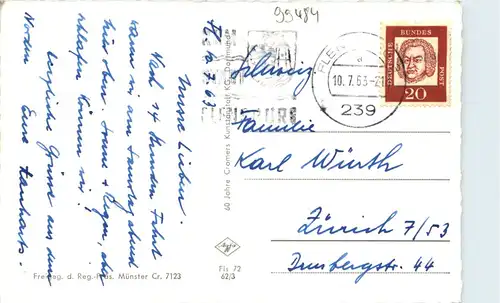 99484
Flsbg 10.7.63
Meine Lieben.
Nach 14 Stunden Fahrt
kamen wir am Samstagabend
hier oben. Sonne & Regen, aber
schlafen können wir!
Herzliche Grüsse aus dem
Norden Eure
60 Jahre Cramers Kunstanstalt KG, Dortmund
FLENSBURG
10.7.63
239
DEUTSCHE BUNDES POST
20
Familie
Karl Würth
Zürich 7/53
44
Agfa
Fls 72
62/3
Freigeg. d. Reg.-Präs. Münster Cr. 7123